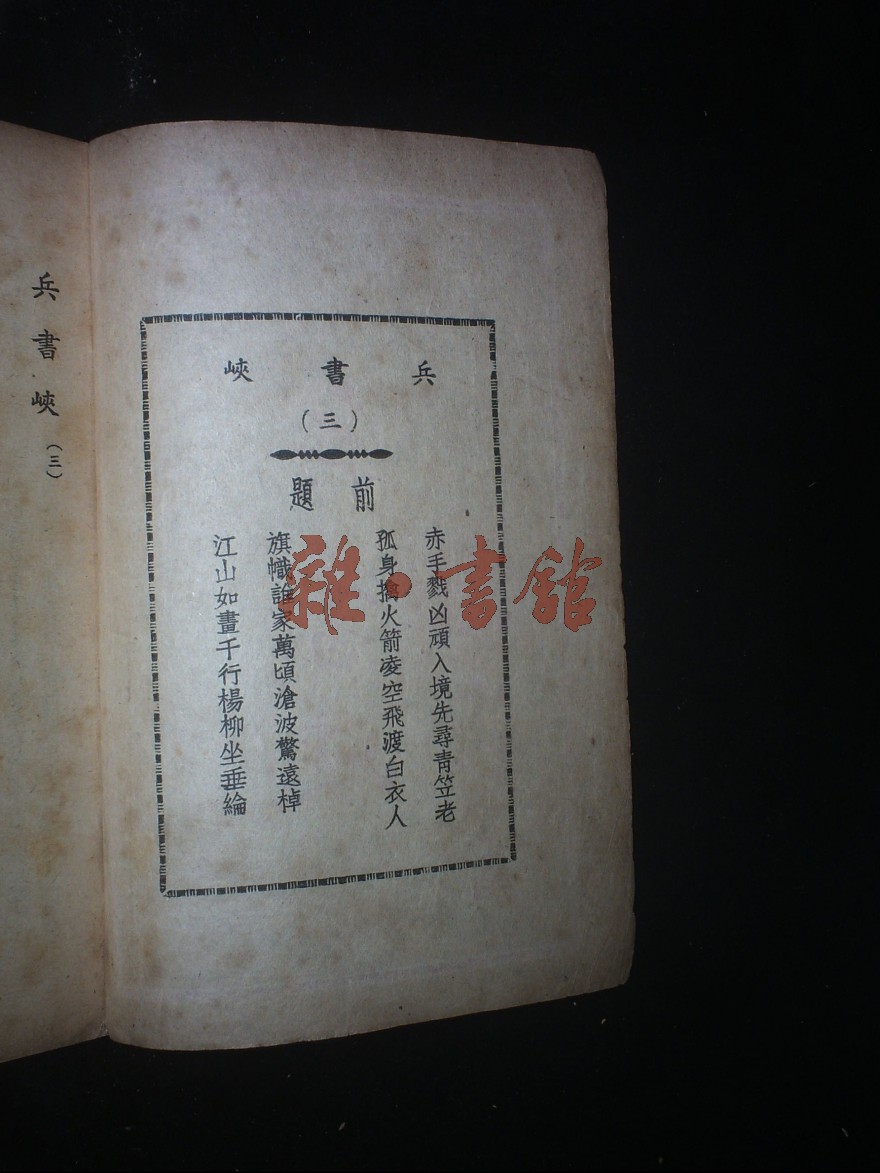 兵書峽
（三）
前題
赤手戮凶頑入境先尋青笠老
孤身擒火箭凌空飛渡白衣人
旗幟誰家萬頃滄波驚遠棹
江山如畫千行楊柳坐垂綸
兵書峽（三）
雜·書館